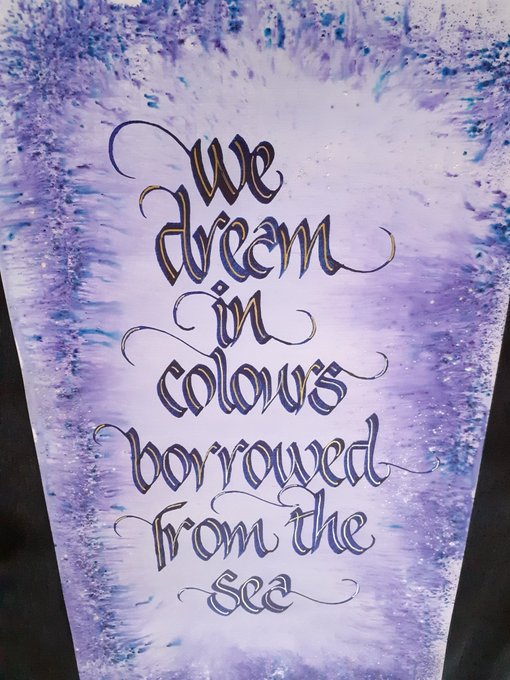 we
dream
in
colours
borrowed
from the
sea